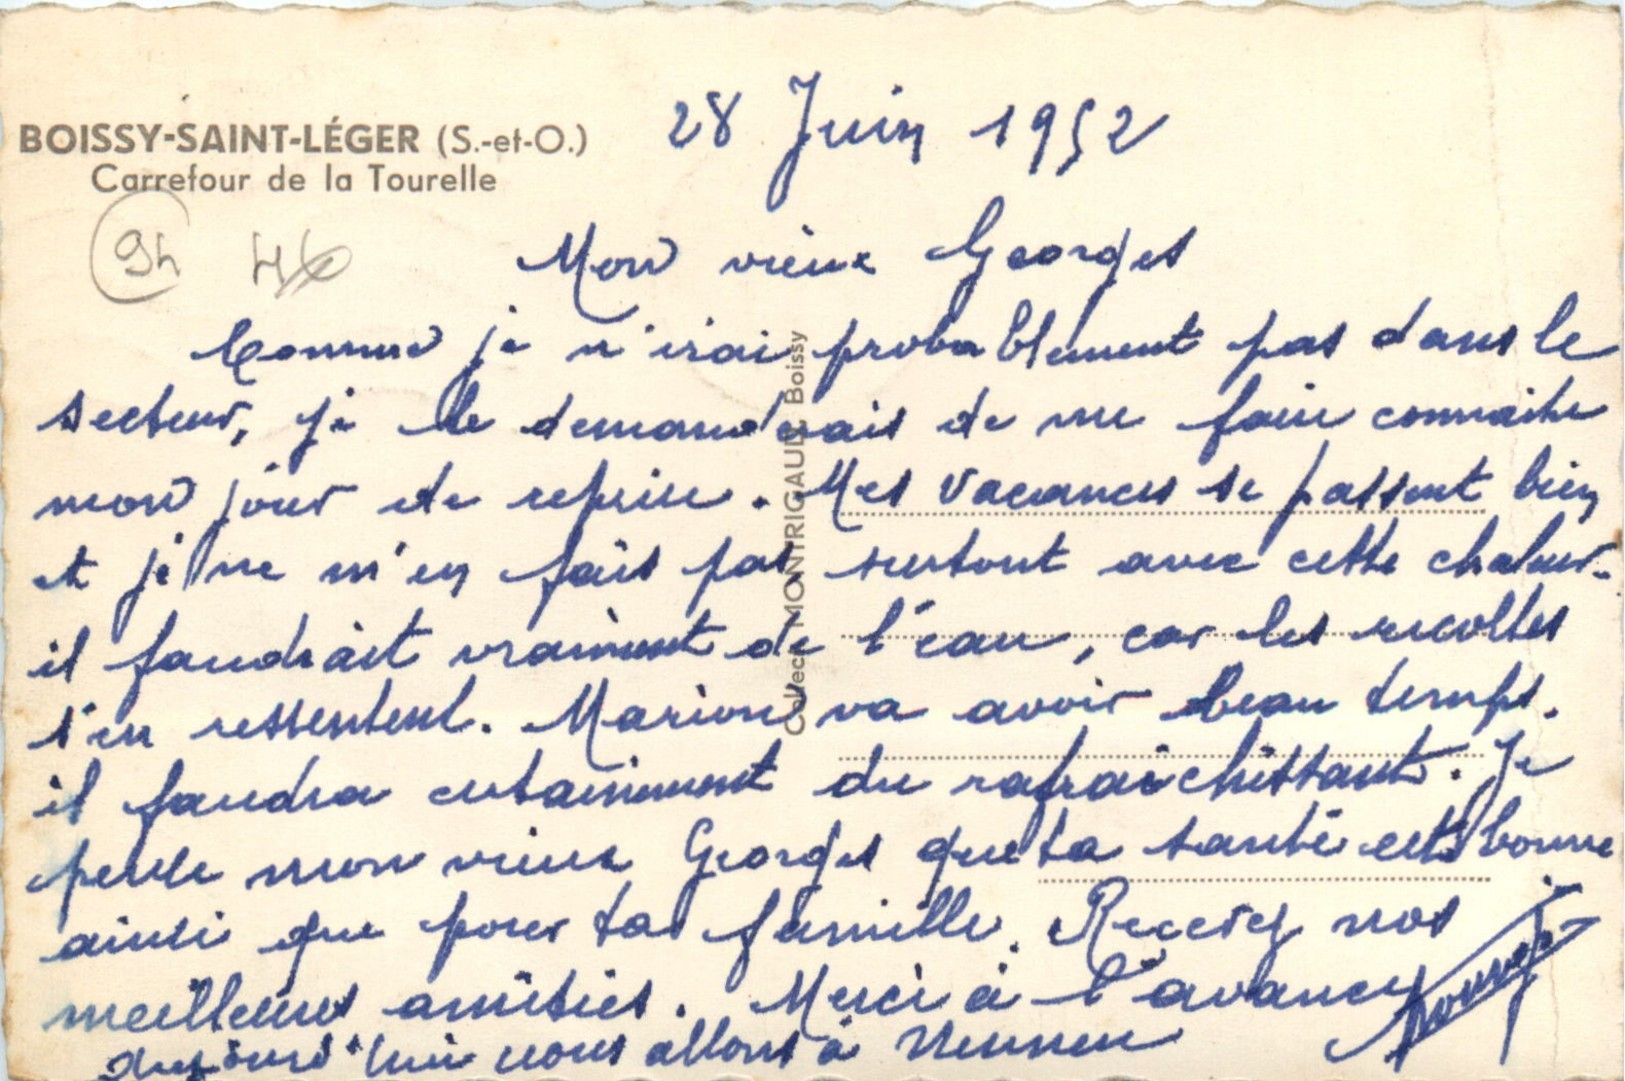 BOISSY-SAINT-LÉGER (S.-et-O.)
Carrefour de la Tourelle
28 Juin 1952
94 46
Mon vieux Georges
Comme je n'irai probablement pas dans le
secteur, je te demanderais de me faire connaitre
mon jour de reprise. Mes vacances se passent bien
et je ne m'en fais pas surtout avec cette chaleur.
il faudrait vraiment de l'eau, car les recoltes
s'en ressentent. Marion va avoir beau temps.
il faudra certainement du rafraichissant. Je
pense mon vieux Georges que ta santé est bonne
ainsi que pour ta famille. Recevez nos
meilleures amitiés. Merci à l'avance
aujourd'hui nous allons à
Collec. MONTRIGAUD Boissy